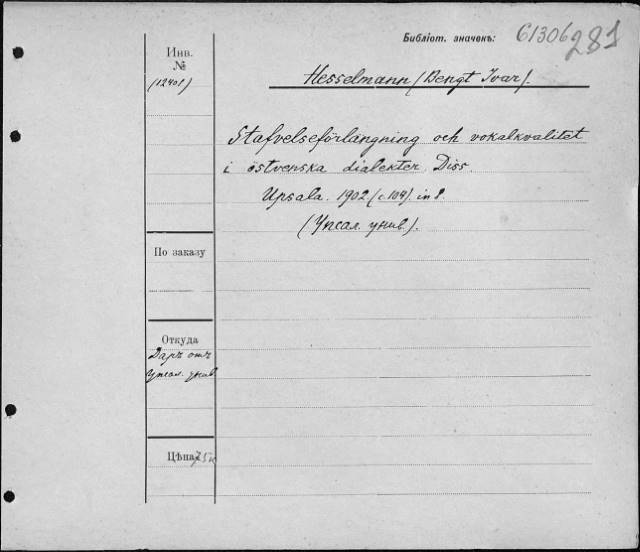 Библіот. значекъ: 61306 281
Инв.
№
(12401)
Hesselmann (Bengt Ivar).
Stafvelseförlangning och vokalkvalitet
i östvenska dialekter. Diss.
Upsala. 1902 (c. 104). in 8.
(Упсал. унив.).
По заказу
Откуда
Даръ отъ
Упсал. унив.
Цѣна 75к